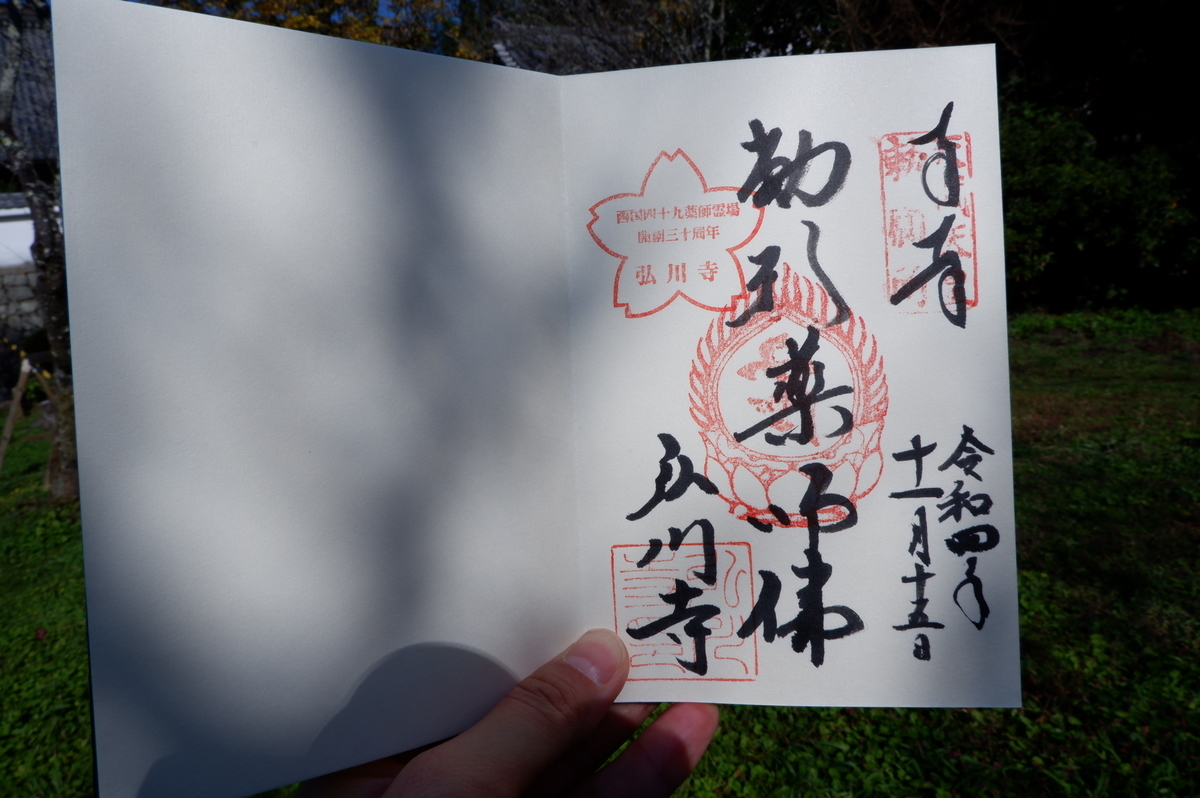 奉拝
令和四年
十一月十五日
薬師佛
西国四十九薬師霊場
開創三十周年
弘川寺
弘川寺